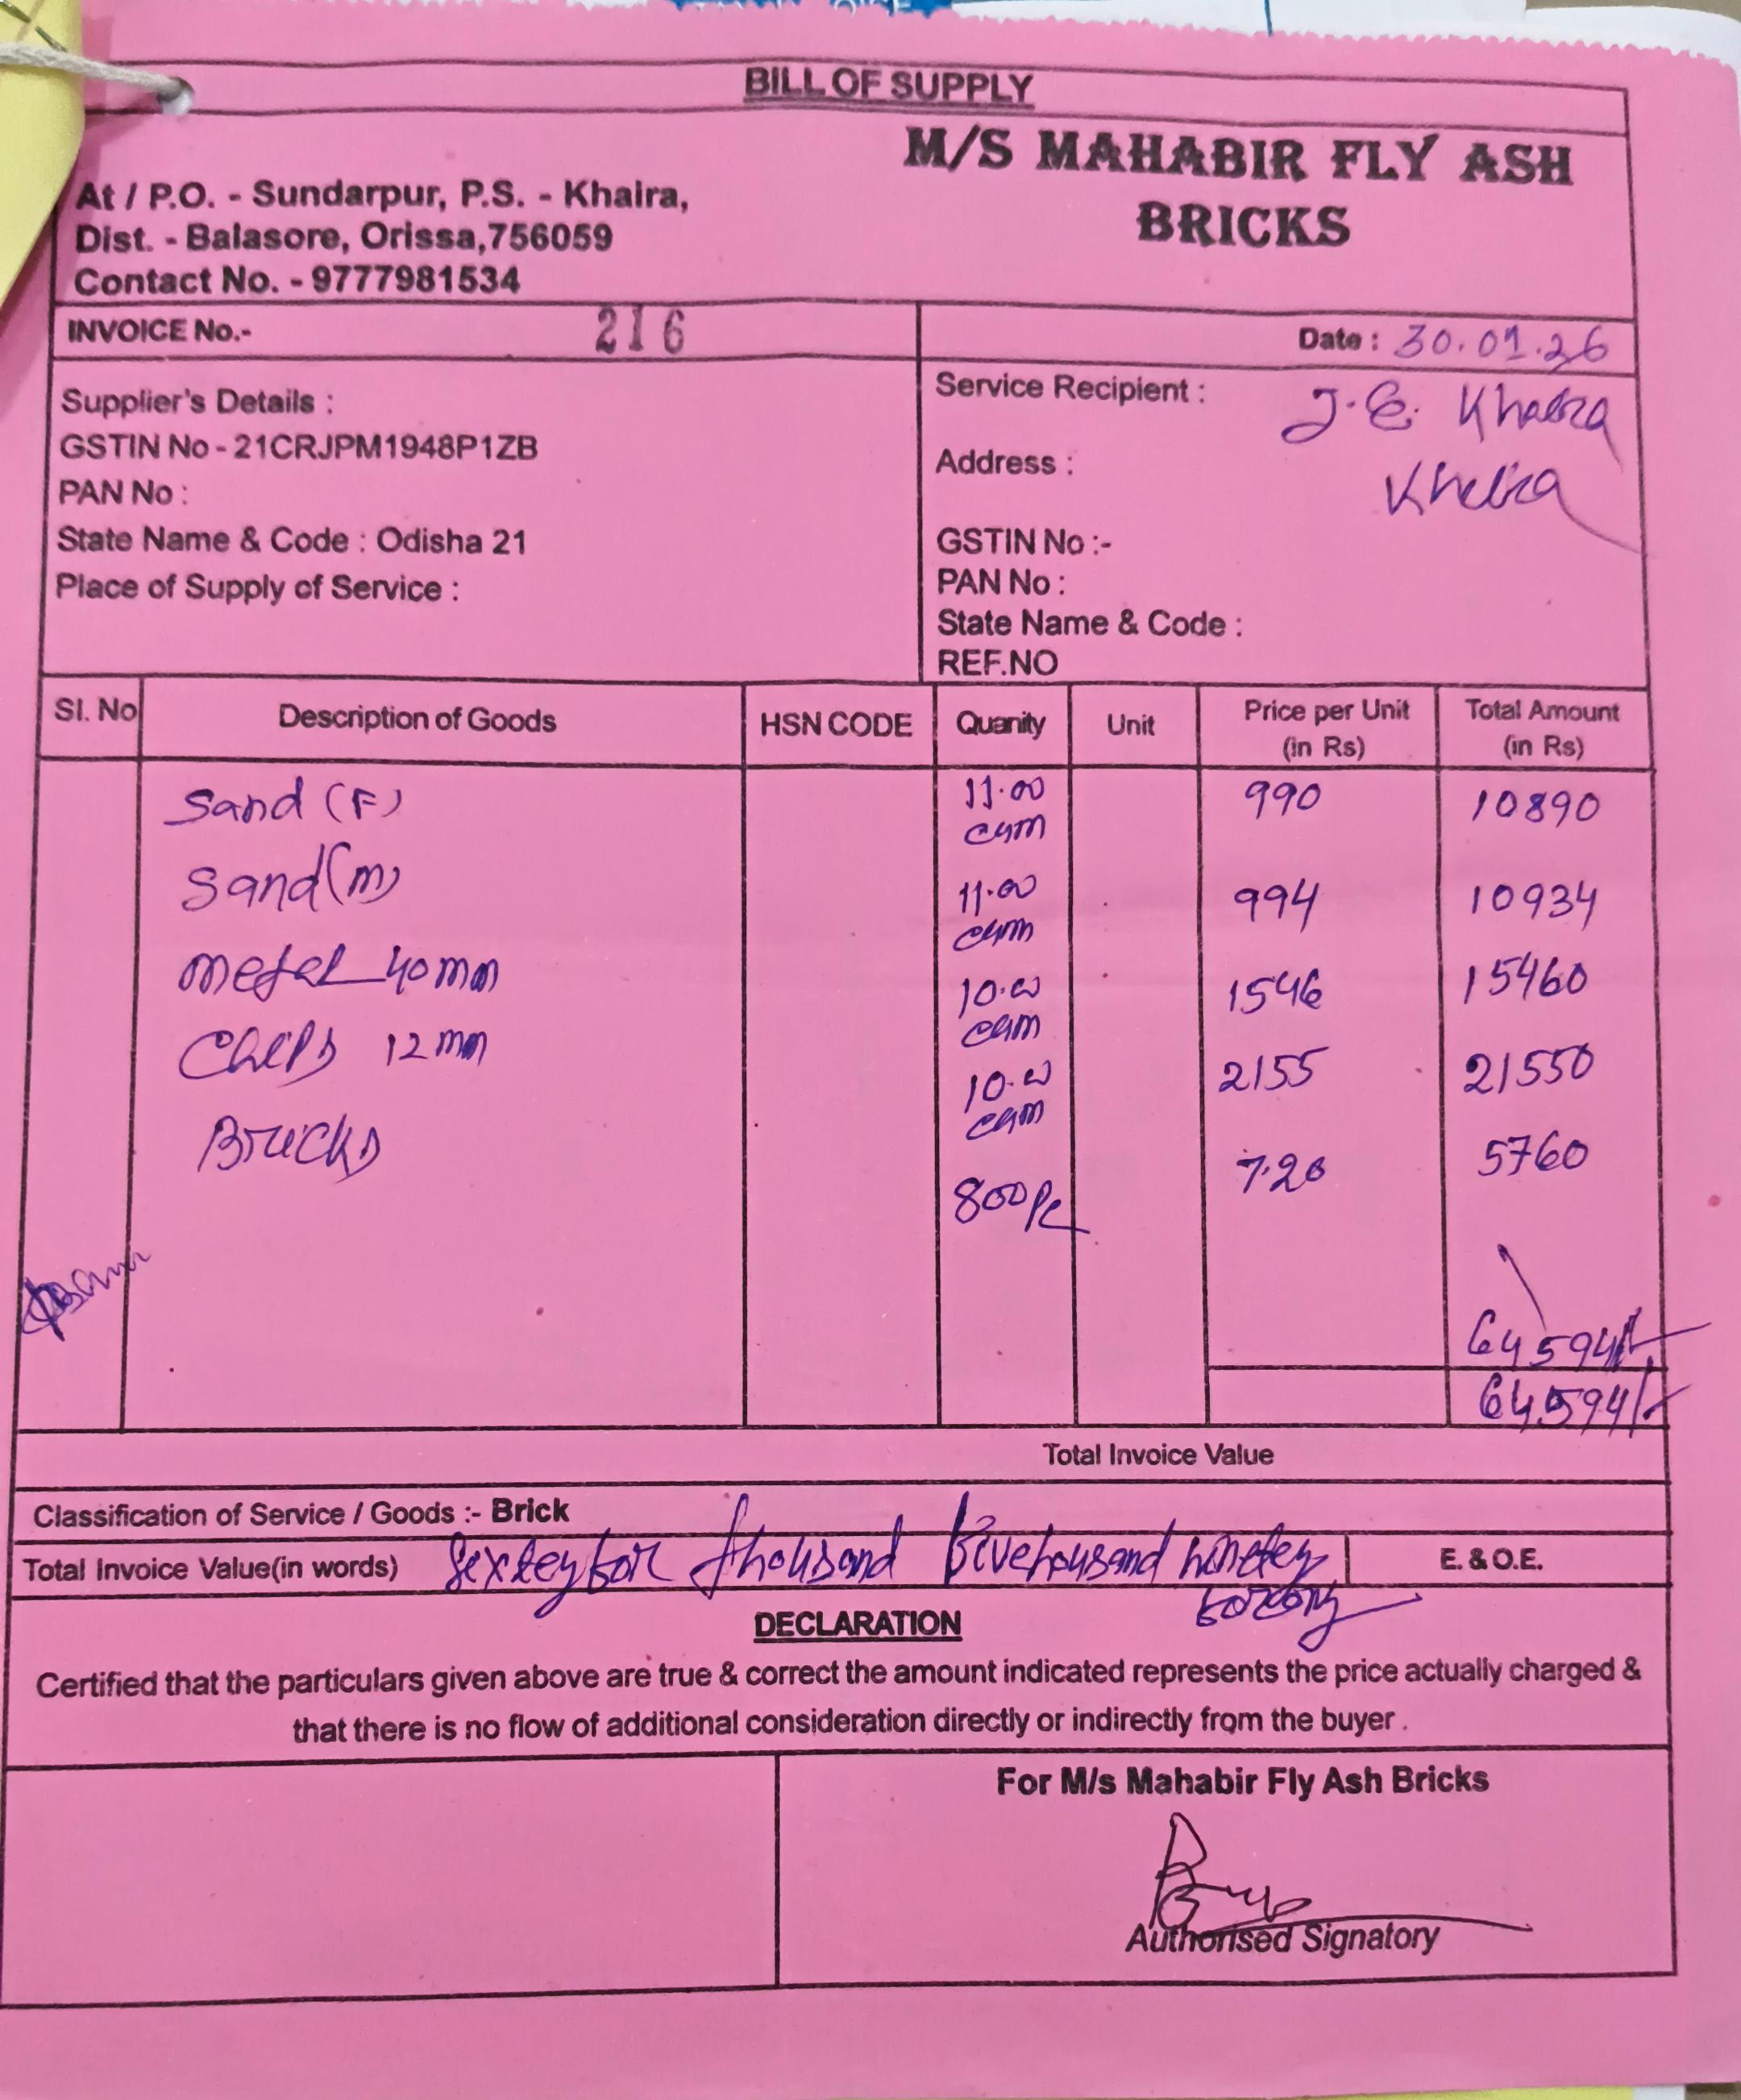 BILL OF SUPPLY
M/S MAHABIR FLY ASH BRICKS
At / P.O. - Sundarpur, P.S. - Khaira,
Dist. - Balasore, Orissa,756059
Contact No. - 9777981534
INVOICE No.- 216
Date : 30.01.26
Supplier's Details :
GSTIN No - 21CRJPM1948P1ZB
PAN No :
State Name & Code : Odisha 21
Place of Supply of Service :
Service Recipient : J.E. Khaira
Address : Khaira
GSTIN No :-
PAN No :
State Name & Code :
REF.NO
Sl. No Description of Goods HSN CODE Quanity Unit Price per Unit (in Rs) Total Amount (in Rs)
Sand (F) 11.00 cum 990 10890
Sand (m) 11.00 cum 994 10934
metal 40 mm 10.00 cum 1546 15460
Chips 12 mm 10.00 cum 2155 21550
Bricks 800 Pc 7.20 5760
64594/-
64594/-
Total Invoice Value
Classification of Service / Goods :- Brick
Total Invoice Value(in words) thousand
E. & O.E.
DECLARATION
Certified that the particulars given above are true & correct the amount indicated represents the price actually charged &
that there is no flow of additional consideration directly or indirectly from the buyer .
For M/s Mahabir Fly Ash Bricks
Authorised Signatory